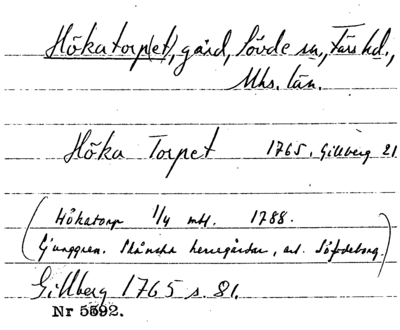 Hökatorp(et), gård, Sövde sn, Färs hd.,
Mhs. län.
Höka Torpet 1765. Gillberg 81
(Hökatorp 1/4 mtl. 1788.
Ljunggren. Skånska herregårdar, art. Söfdeborg.)
Gillberg 1765 s. 81.
Nr 5592.